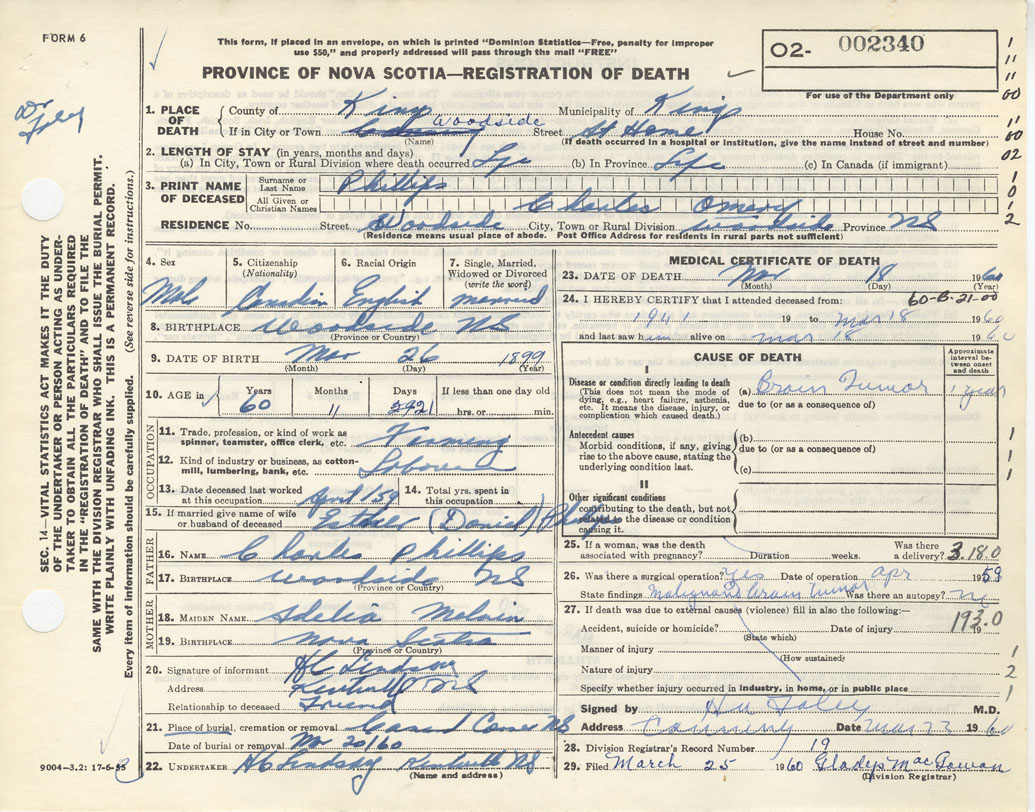 FORM 6
This form, if placed in an envelope, on which is printed "Dominion Statistics—Free, penalty for improper
use $50," and properly addressed will pass through the mail "FREE"
PROVINCE OF NOVA SCOTIA—REGISTRATION OF DEATH
O2- 002340
For use of the Department only
Dr
Foley
SEC. 14—VITAL STATISTICS ACT MAKES IT THE DUTY
OF THE UNDERTAKER OR PERSON ACTING AS UNDER-
TAKER TO OBTAIN ALL THE PARTICULARS REQUIRED
IN THE "REGISTRATION OF DEATH" AND TO FILE THE
SAME WITH THE DIVISION REGISTRAR WHO SHALL ISSUE THE BURIAL PERMIT.
WRITE PLAINLY WITH UNFADING INK. THIS IS A PERMANENT RECORD.
Every item of information should be carefully supplied. (See reverse side for instructions.)
1. PLACE OF DEATH
County of Kings Municipality of Kings
If in City or Town Woodside Street At Home House No.
(Name) (If death occurred in a hospital or institution, give the name instead of street and number)
2. LENGTH OF STAY (in years, months and days)
(a) In City, Town or Rural Division where death occurred Life (b) In Province Life (c) In Canada (if immigrant)
3. PRINT NAME OF DECEASED
Surname or Last Name Phillips
All Given or Christian Names Charles Omery
RESIDENCE No. Street Woodside City, Town or Rural Division Woodside Province NS
(Residence means usual place of abode. Post Office Address for residents in rural parts not sufficient)
4. Sex Male
5. Citizenship (Nationality) Canadian
6. Racial Origin English
7. Single, Married, Widowed or Divorced (write the word) married
8. BIRTHPLACE Woodside NS
(Province or Country)
9. DATE OF BIRTH Mar 26 1899
(Month) (Day) (Year)
10. AGE in Years 60 Months 11 Days 21 If less than one day old hrs. or min.
OCCUPATION
11. Trade, profession or kind of work as spinner, teamster, office clerk, etc. Farming
12. Kind of industry or business, as cotton-mill, lumbering, bank, etc. Laborer
13. Date deceased last worked at this occupation April 1/59
14. Total yrs. spent in this occupation
15. If married give name of wife or husband of deceased Esther (Daniel) Phillips
FATHER
16. NAME Charles Phillips
17. BIRTHPLACE Woodside NS
(Province or Country)
MOTHER
18. MAIDEN NAME Adelia Melvin
19. BIRTHPLACE Nova Scotia
(Province or Country)
20. Signature of informant HC Lindsay
Address Kentville NS
Relationship to deceased Friend
21. Place of burial, cremation or removal Corner NS
Date of burial or removal Mar 20/60
22. UNDERTAKER HC Lindsay Kentville NS
(Name and address)
9004—3.2: 17-6-55
MEDICAL CERTIFICATE OF DEATH
23. DATE OF DEATH Mar 18 1960
(Month) (Day) (Year)
24. I HEREBY CERTIFY that I attended deceased from: 60-B-21-00
1941 19 to Mar 18 1960
and last saw him alive on Mar 18 1960
CAUSE OF DEATH
Approximate interval between onset and death
I
Disease or condition directly leading to death
(This does not mean the mode of dying, e.g., heart failure, asthenia, etc. It means the disease, injury, or complication which caused death.)
(a) Brain Tumor 1 year
due to (or as a consequence of)
Antecedent causes
Morbid conditions, if any, giving rise to the above cause, stating the underlying condition last.
(b)
due to (or as a consequence of)
(c)
II
Other significant conditions
contributing to the death, but not related to the disease or condition causing it.
25. If a woman, was the death associated with pregnancy? Duration weeks. Was there a delivery? 3.18.0
26. Was there a surgical operation? Yes Date of operation Apr 1959
State findings Malignant Brain Tumor Was there an autopsy? No
27. If death was due to external causes (violence) fill in also the following:—
193.0
Accident, suicide or homicide? Date of injury 19
(State which)
Manner of injury
(How sustained)
Nature of injury
Specify whether injury occurred in industry, in home, or in public place
Signed by Foley M.D.
Address Canning Date Mar 23 1960
28. Division Registrar's Record Number 19
29. Filed March 25 1960 Gladys MacGowan
(Division Registrar)